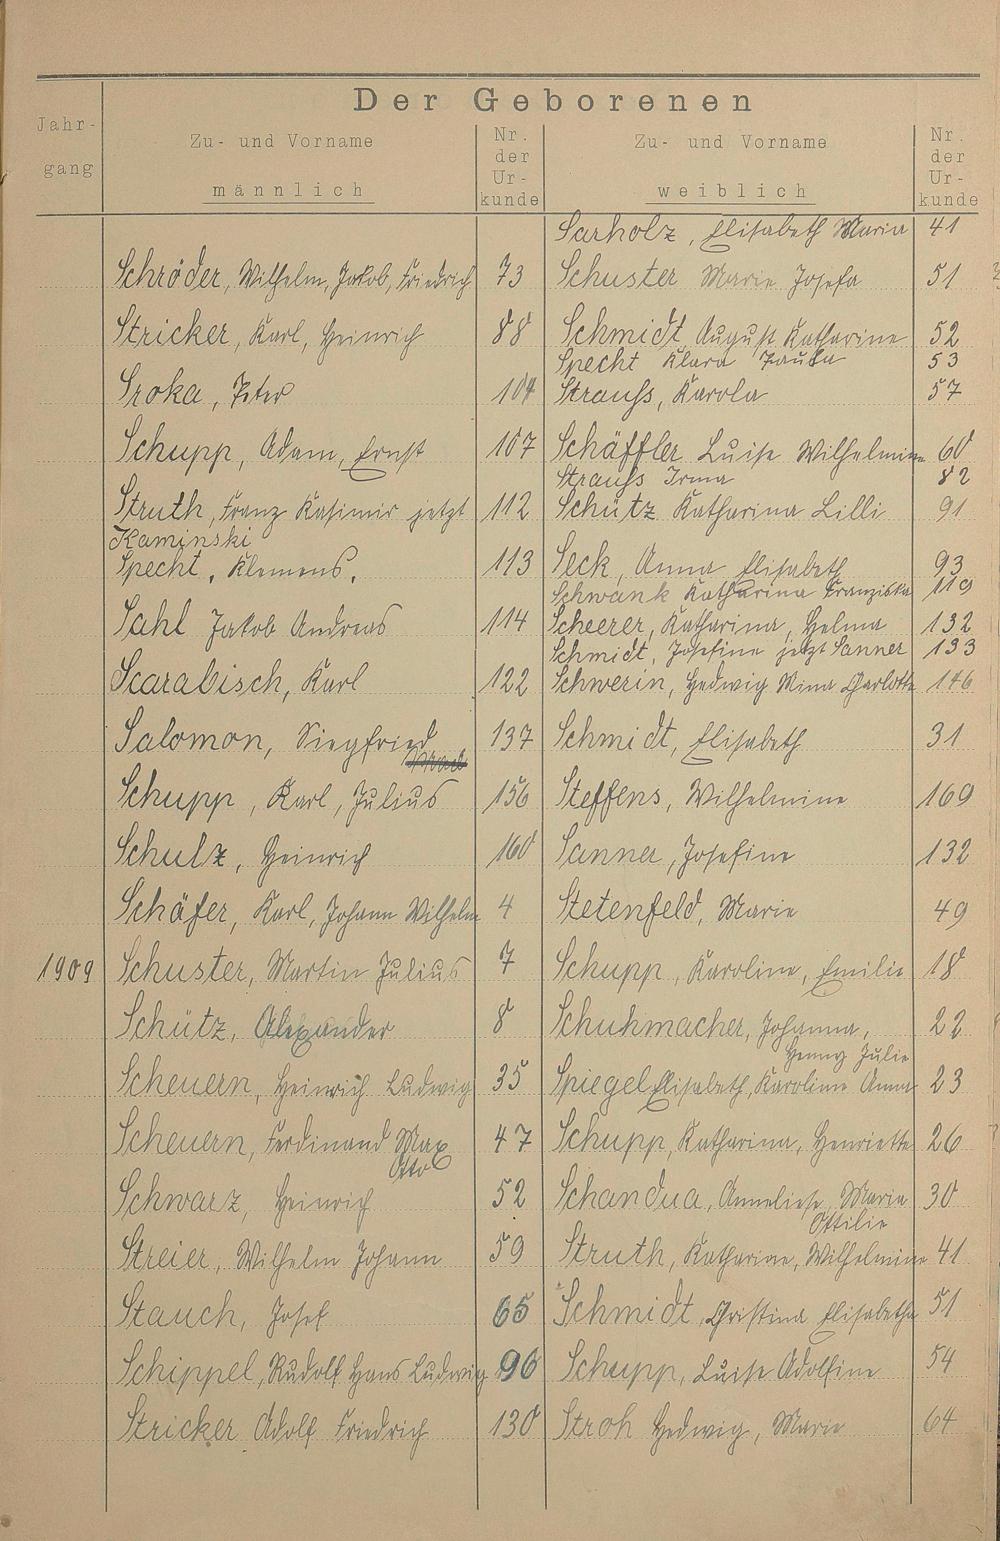 Der Geborenen
Jahr-
gang
Zu- und Vorname
männlich
Nr.
der
Ur-
kunde
Zu- und Vorname
weiblich
Nr.
der
Ur-
kunde
Sarholz, Elisabeth Maria 41
Schröder, Wilhelm, Jakob, Friedrich 73 Schuster Marie Josefa 51
Stricker, Karl, Heinrich 88 Schmidt August Katharine 52
Specht Klara Paula 53
Sroka, Peter 104 Strauss, Karola 57
Schupp, Adam, Ernst 107 Schäffler Luise Wilhelmine 60
Strauss Irma 82
Struth, Franz Kasimir jetzt 112 Schütz Katharina Lilli 91
Kaminski
Specht, Klemens. 113 Seck, Anna Elisabeth 93
Schwank Katharina Franziska 119
Sahl Jakob Andreas 114 Scheerer, Katharina, Helma 132
Schmidt, Josefine jetzt Sanner 133
Scarabisch, Karl 122 Schwerin, Hedwig Mina Charlotte 146
Salomon, Siegfried 137 Schmidt, Elisabeth 31
Schupp, Karl, Julius 156 Steffens, Wilhelmine 169
Schulz, Heinrich 160 Sanner, Josefine 132
Schäfer, Karl, Johann Wilhelm 4 Stetenfeld, Marie 49
1909 Schuster, Martin Julius 7 Schupp, Karoline, Emilie 18
Schütz, Alexander 8 Schuhmacher, Johanna, 22
Henny Julie
Scheuern, Heinrich Ludwig 35 Spiegel Elisabeth, Karoline Anna 23
Scheuern, Ferdinand Max 47 Schupp, Katharina, Henriette 26
Otto
Schwarz, Heinrich 52 Schandua, Anneliese, Maria 30
Ottilie
Streier, Wilhelm Johann 59 Struth, Katharine, Wilhelmine 41
Stauch, Josef 65 Schmidt, Christina Elisabetha 51
Schippel, Rudolf Hans Ludwig 96 Schupp, Luise Adolfine 54
Stricker Adolf Friedrich 130 Stroh Hedwig, Marie 64